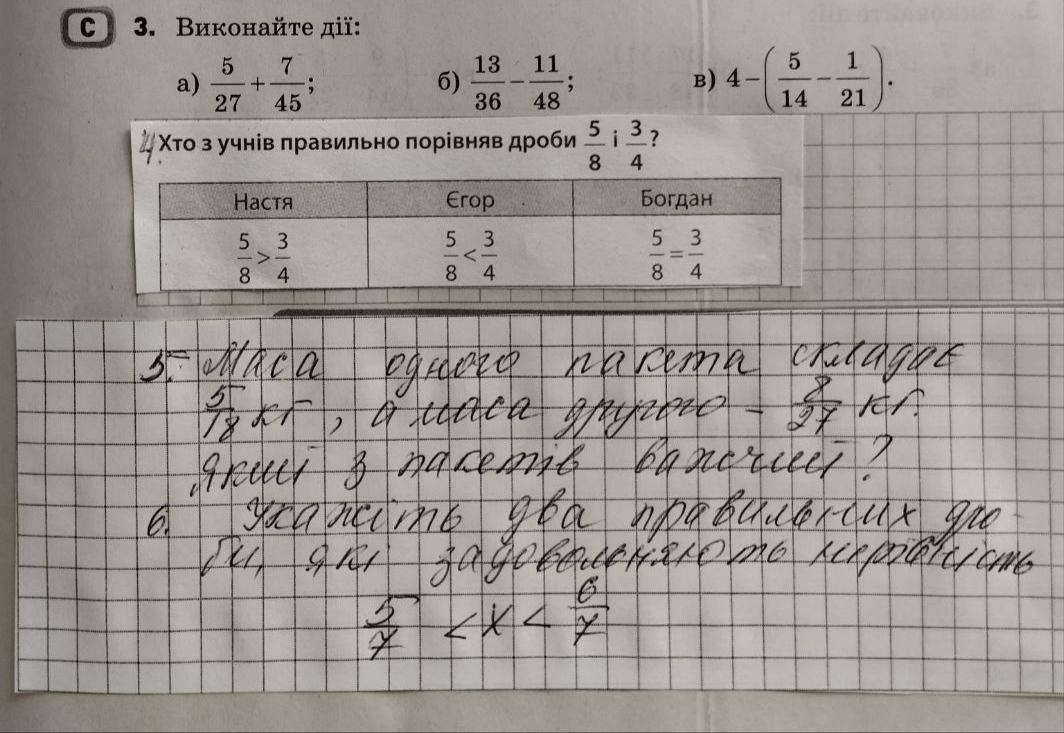 С 3. Виконайте дії:
а) 5/27 + 7/45; б) 13/36 − 11/48; в) 4 − (5/14 − 1/21).
4. Хто з учнів правильно порівняв дроби 5/8 і 3/4?
Настя Єгор Богдан
5/8 > 3/4 5/8 < 3/4 5/8 = 3/4
5. Маса одного пакета складає
5/18 кг, а маса другого – 8/27 кг.
Який з пакетів важчий?
6. Укажіть два правильних дро-
би, які задовольняють нерівність
5/7 < x < 6/7